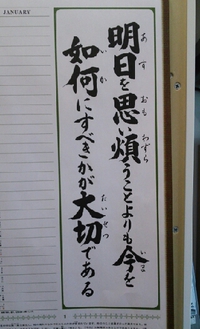 JANUARY
明日を思い煩うことよりも今を
如何にすべきかが大切である
あす
おも
わずら
いま
いか
たいせつ